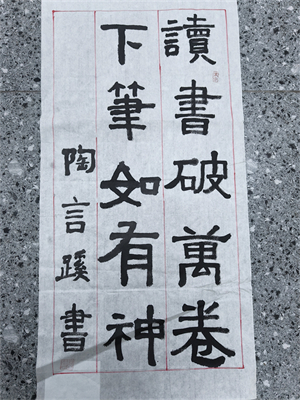 讀書破萬卷
下筆如有神
陶言蹊書